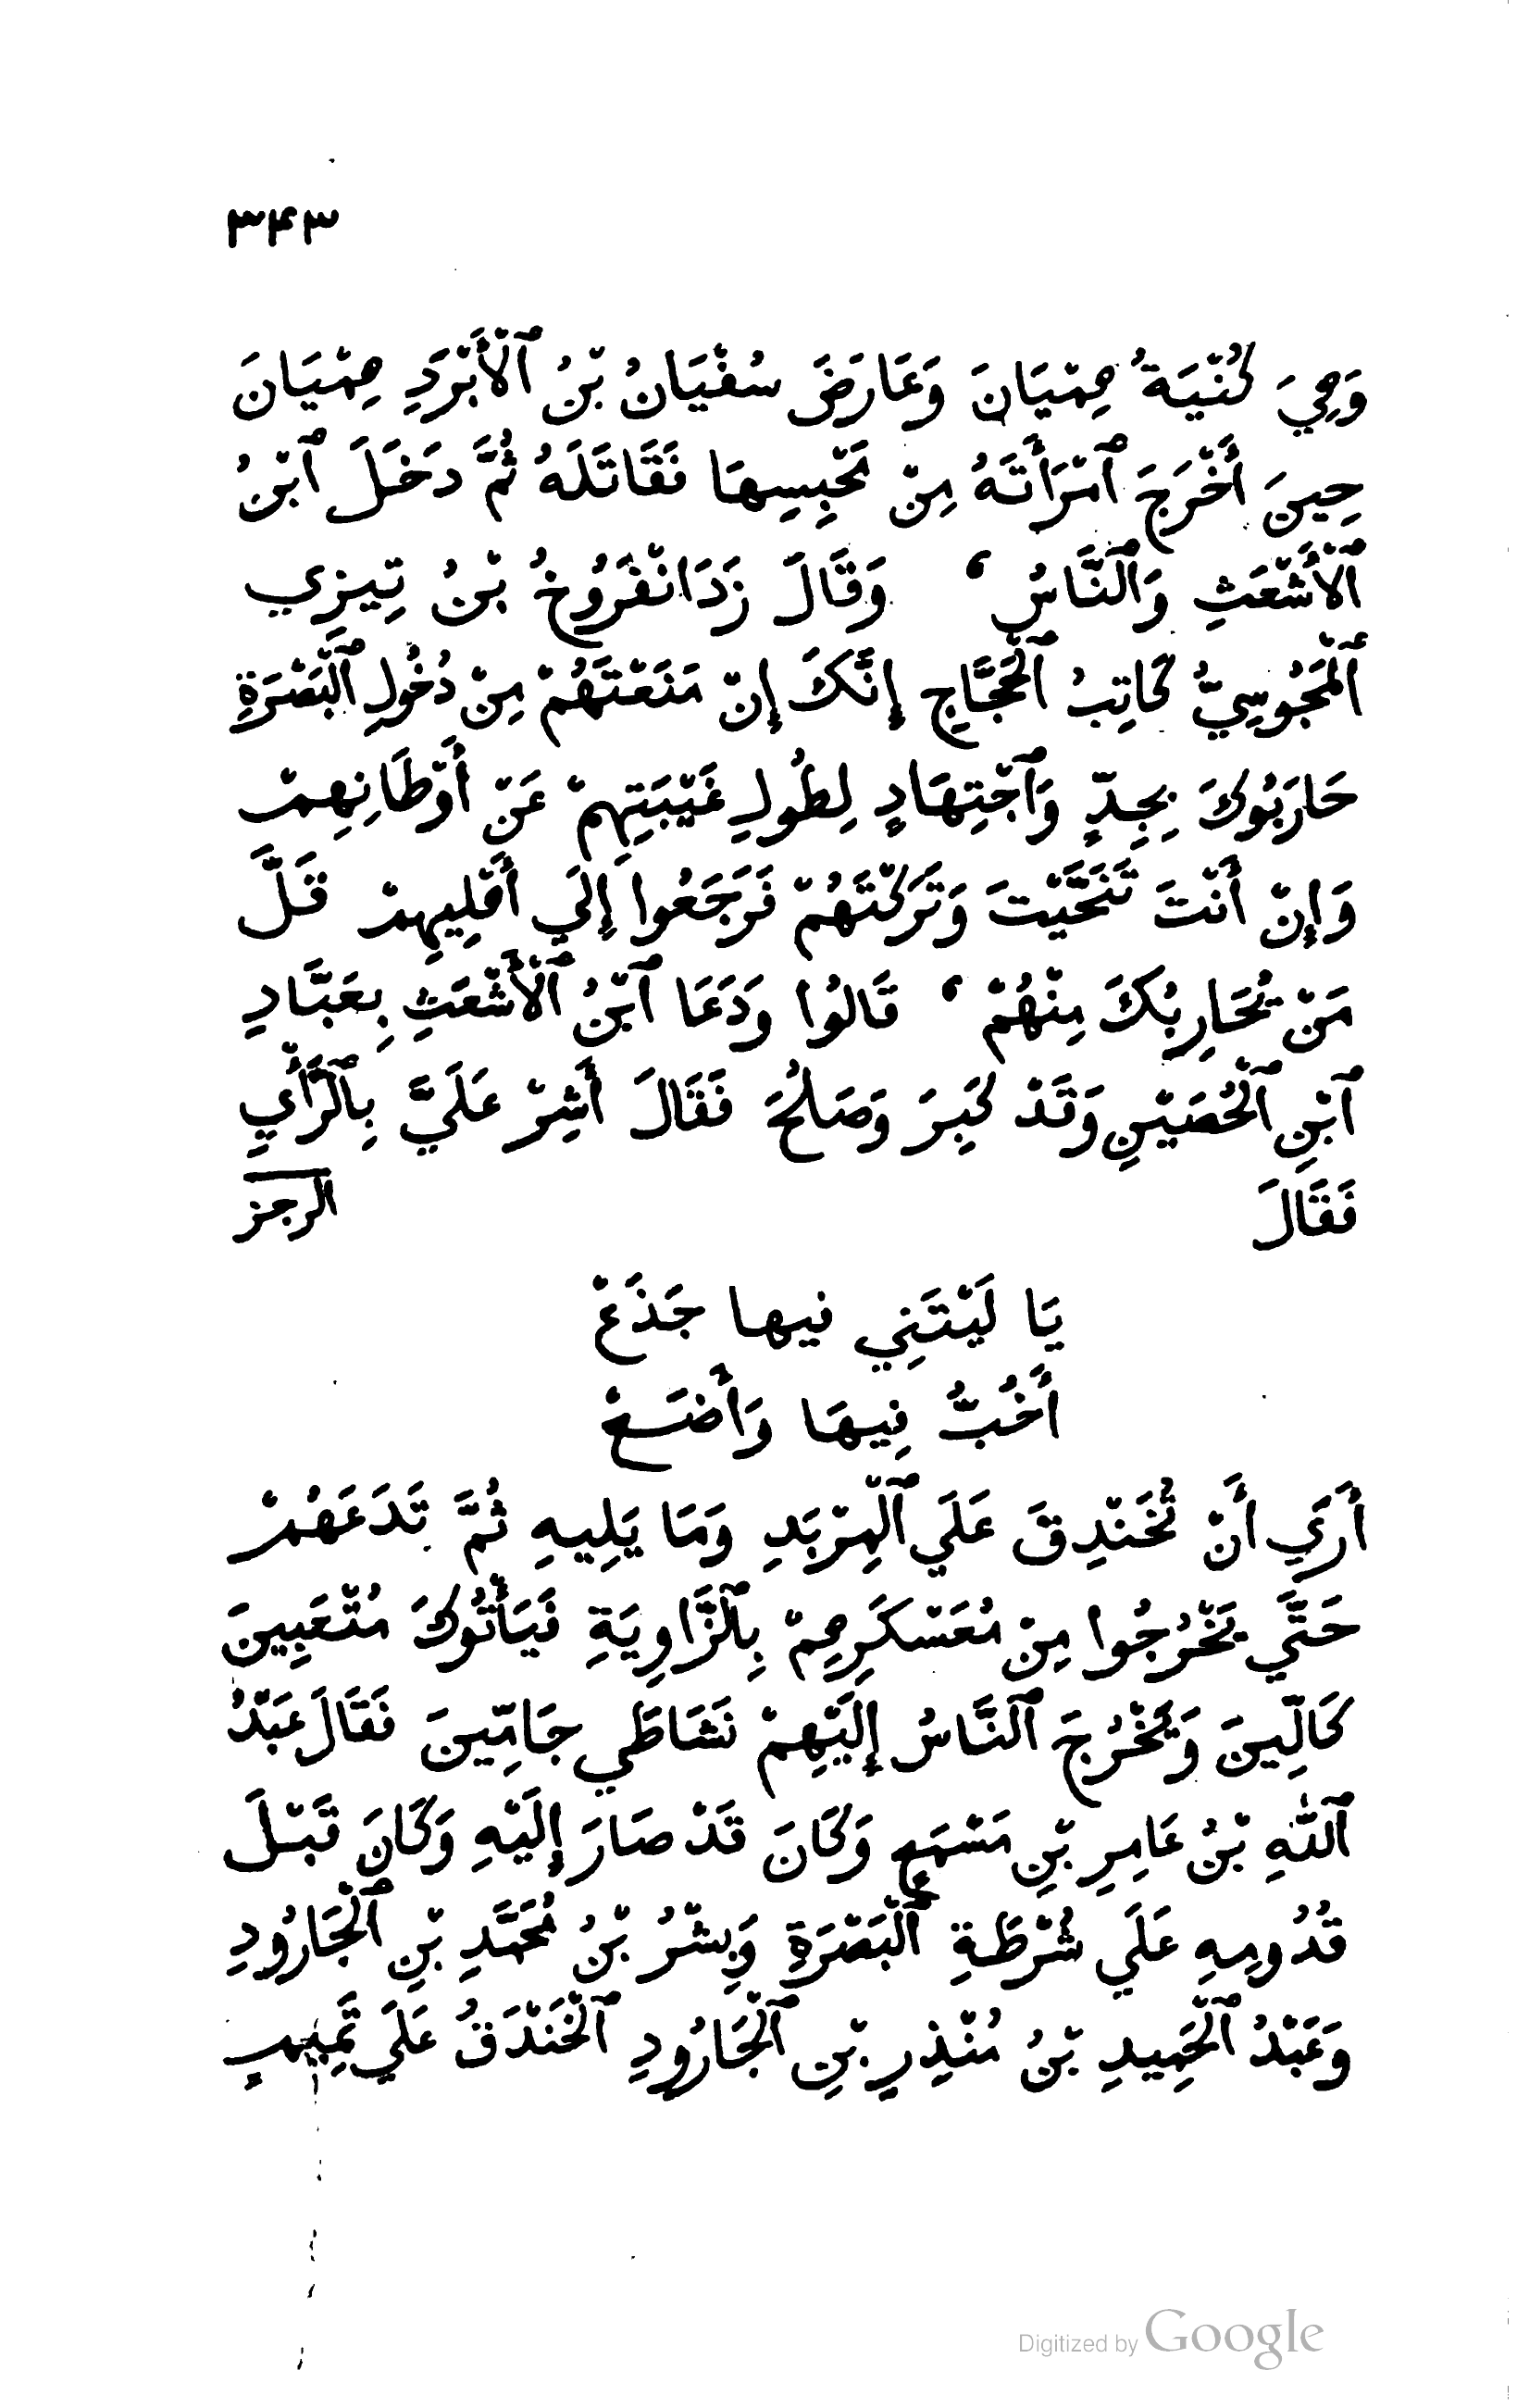 ٣٤٣
وَهِيَ كُنْيَةُ هِمْيَانَ وَعَارَضَ سُفْيَانُ بْنُ ٱلْأَبْرَدِ هِمْيَانَ
حِينَ أَخْرَجَ ٱمْرَأَتَهُ مِنْ مَحْبِسِهَا فَقَاتَلَهُ ثُمَّ دَخَلَ ٱبْنُ
ٱلْأَشْعَثِ وَٱلنَّاسُ ، وَقَالَ زَدَانْفَرُوخُ بْنُ تِيزِي
ٱلْمَجُوسِيُّ كَاتِبُ ٱلْحَجَّاجِ إِنَّكَ إِنْ مَنَعْتَهُمْ مِنْ دُخُولِ ٱلْبَصْرَةِ
حَارَبُوكَ بِجِدٍّ وَٱجْتِهَادٍ لِطُولِ غَيْبَتِهِمْ عَنْ أَوْطَانِهِمْ
وَإِنْ أَنْتَ تَنَحَّيْتَ وَتَرَكْتَهُمْ فَرَجَعُوا إِلَي أَهْلِيهِمْ قَلَّ
مَنْ يُحَارِبُكَ مِنْهُمْ ، قَالُوا وَدَعَا ٱبْنُ ٱلْأَشْعَثِ بِعَبَّادِ
ٱبْنِ ٱلْحُصَيْنِ وَقَدْ كَبِرَ وَصَلُحَ فَقَالَ أَشِرْ عَلَيَّ بِٱلرَّأْيِ
فَقَالَ الرجز
يَا لَيْتَنِي فيها جَذَعْ
أَخُبُّ فِيهَا وَأَضَعْ
أَرَي أَنْ تُخَنْدِقَ عَلَي ٱلْمِرْبَدِ وَمَا يَلِيهِ ثُمَّ تَدَعَهُمْ
حَتَّي يَخْرُجُوا مِنْ مُعَسْكَرِهِمْ بِٱلزَّاوِيَةِ فَيَأْتُوكَ مُتْعَبِينَ
كَالِّينَ وَيَخْرُجَ ٱلنَّاسُ إِلَيْهِمْ نَشَاطَي جَامِّينَ فَقَالَ عَبْدُ
ٱللّٰهِ بْنُ عَامِرِ بْنِ مَسْمَعٍ وَكَانَ قَدْ صَارَ إِلَيْهِ وَكَانَ قَبْلَ
قُدُومِهِ عَلَي شُرْطَةِ ٱلْبَصْرَةِ وَبِشْرُ بْنُ مُحَمَّدِ بْنِ ٱلْجَارُودِ
وَعَبْدُ ٱلْحَمِيدِ بْنُ مُنْذِرِ بْنِ ٱلْجَارُودِ ٱلْخَنْدَقُ عَلَي تَمِيمٍ
Digitized by Google